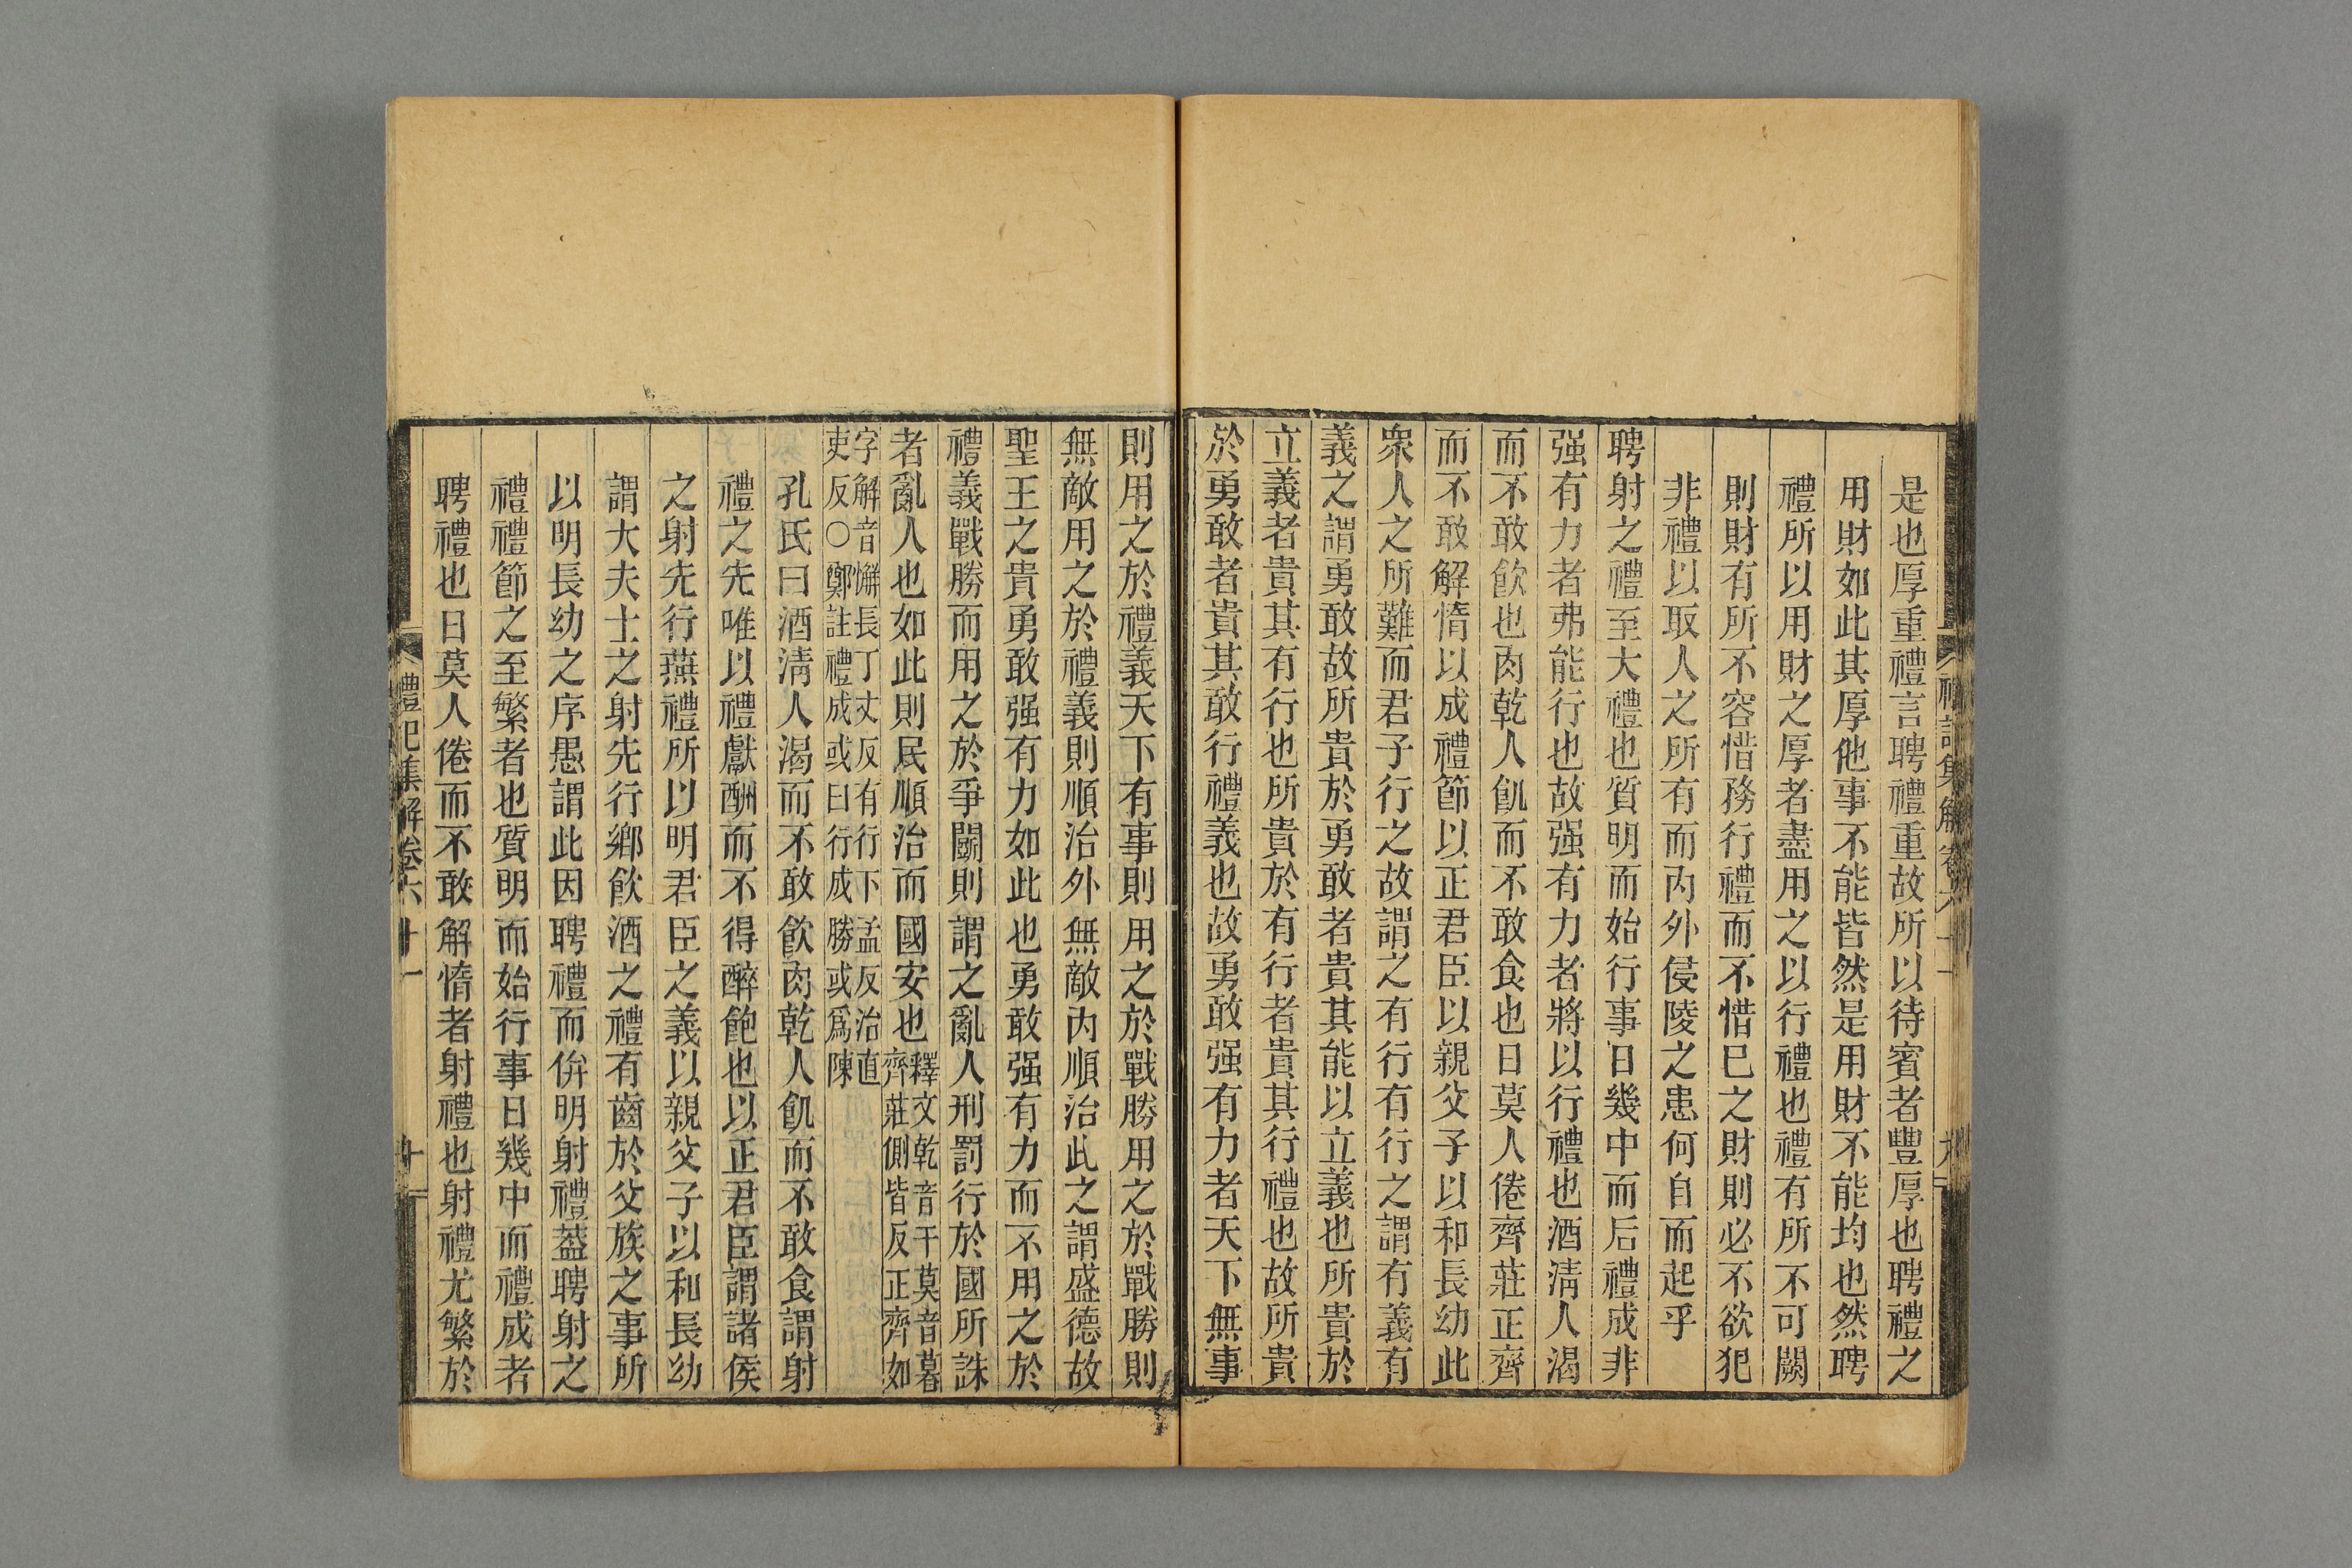 是也厚重禮言聘禮重故所以待賓者豐厚也聘禮之
用財如此其厚他事不能皆然是用財不能均也然聘
禮所以用財之厚者盡用之以行禮也禮有所不可闕
則財有所不容惜務行禮而不惜已之財則必不欲犯
非禮以取人之所有而內外侵陵之患何自而起乎
聘射之禮至大禮也質明而始行事日幾中而后禮成非
强有力者弗能行也故强有力者將以行禮也酒淸人渴
而不敢飮也肉乾人飢而不敢食也日莫人倦齊莊正齊
而不敢解惰以成禮節以正君臣以親父子以和長幼此
衆人之所難而君子行之故謂之有行有行之謂有義有
義之謂勇敢故所貴於勇敢者貴其能以立義也所貴於
立義者貴其有行也所貴於有行者貴其行禮也故所貴
於勇敢者貴其敢行禮義也故勇敢强有力者天下無事
則用之於禮義天下有事則用之於戰勝用之於戰勝則
無敵用之於禮義則順治外無敵內順治此之謂盛德故
聖王之貴勇敢强有力如此也勇敢强有力而不用之於
禮義戰勝而用之於爭鬭則謂之亂人刑罰行於國所誅
者亂人也如此則民順治而國安也釋文乾音干莫音暮
齊莊側皆反正齊如
字解音懈長丁丈反有行下孟反治直
吏反○鄭註禮成或曰行成勝或爲陳
孔氏曰酒淸人渴而不敢飮肉乾人飢而不敢食謂射
禮之先唯以禮獻酬而不得醉飽也以正君臣謂諸侯
之射先行燕禮所以明君臣之義以親父子以和長幼
謂大夫士之射先行鄉飮酒之禮有齒於父族之事所
以明長幼之序愚謂此因聘禮而倂明射禮葢聘射之
禮禮節之至繁者也質明而始行事日幾中而禮成者
聘禮也日莫人倦而不敢解惰者射禮也射禮尤繁於
禮記集解卷六十一